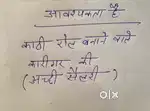 आवश्यकता है
काठी रोल बनाने वाले
कारीगर की
(अच्छी सैलरी)
OLX